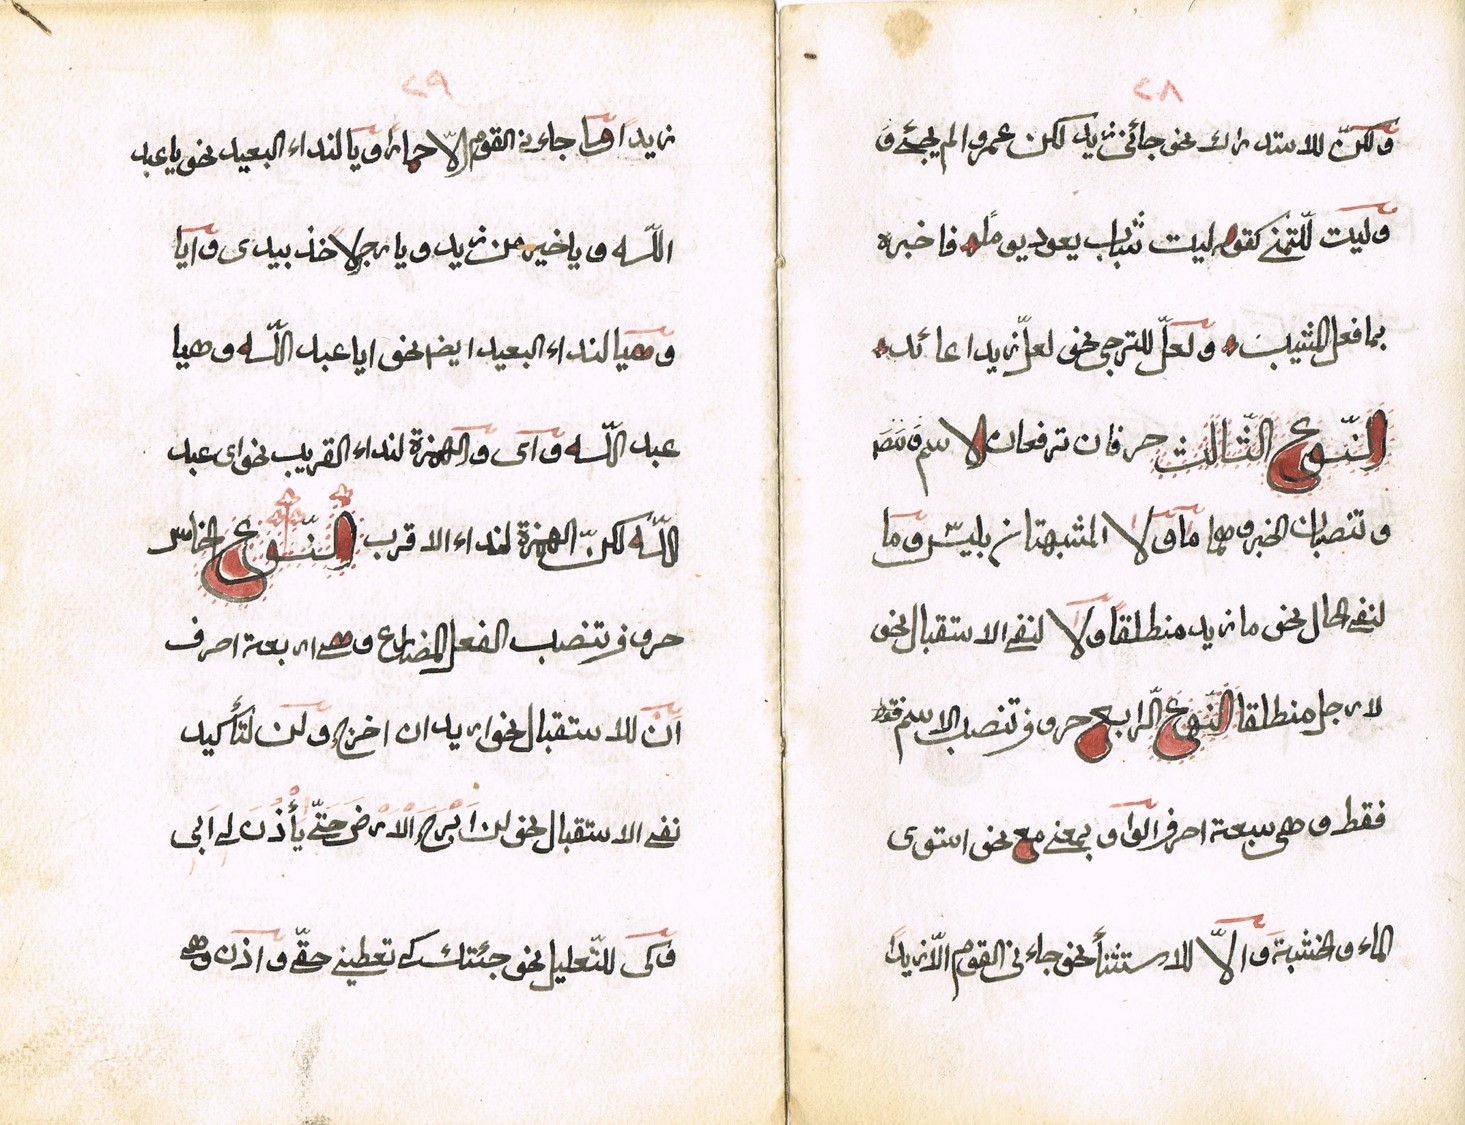 ٢٨
ولكنّ للاستدراك نحو جائني زيد لكن عمروا لم يجئ و
وليت للتمني كقوله ليت شباب يعود يوما فاخبره
بما فعل المشيب ولعلّ للترجى نحو لعلّ زيدا عائد
النّوع الثّالث حرفان ترفعان الاسم
و تنصبان الخبر وهما ما ولا المشبهتان بليس وما
لنفى الحال نحو ما زيد منطلقا ولا لنفى الاستقبال نحو
لا رجل منطلقا النّوع الرّابع حروف تنصب الاسم فقط
فقط وهى سبعة احرف الواو بمعنى مع نحو استوى
الماء والخشبة و الاّ للاستثنأ نحو جاءنى القوم الاّ زيداً
٢٩
زيداً وما جاءنى القوم الاّ حمارا ويا لنداء البعيد نحو يا عبد
اللّه و يا خير من زيد ويا رجلا خذ بيدى و ايا
وهيا لنداء البعيد ايضا نحو ايا عبد اللّه و هيا
عبد اللّه و اى و الهمزة لنداء القريب نحو اى عبد
اللّه لكنّ الهمزة لنداء الاقرب النّوع الخامس
حروف تنصب الفعل المضارع وهى اربعة احرف
ان للاستقبال نحو اريد ان اخرج ولن لتأكيد
نفى الاستقبال نحو لن ابرح الارض حتّى يأذن لى ابى
وكى للتّعليل نحو جئتك كى تعطينى حقّى و اذن وهى